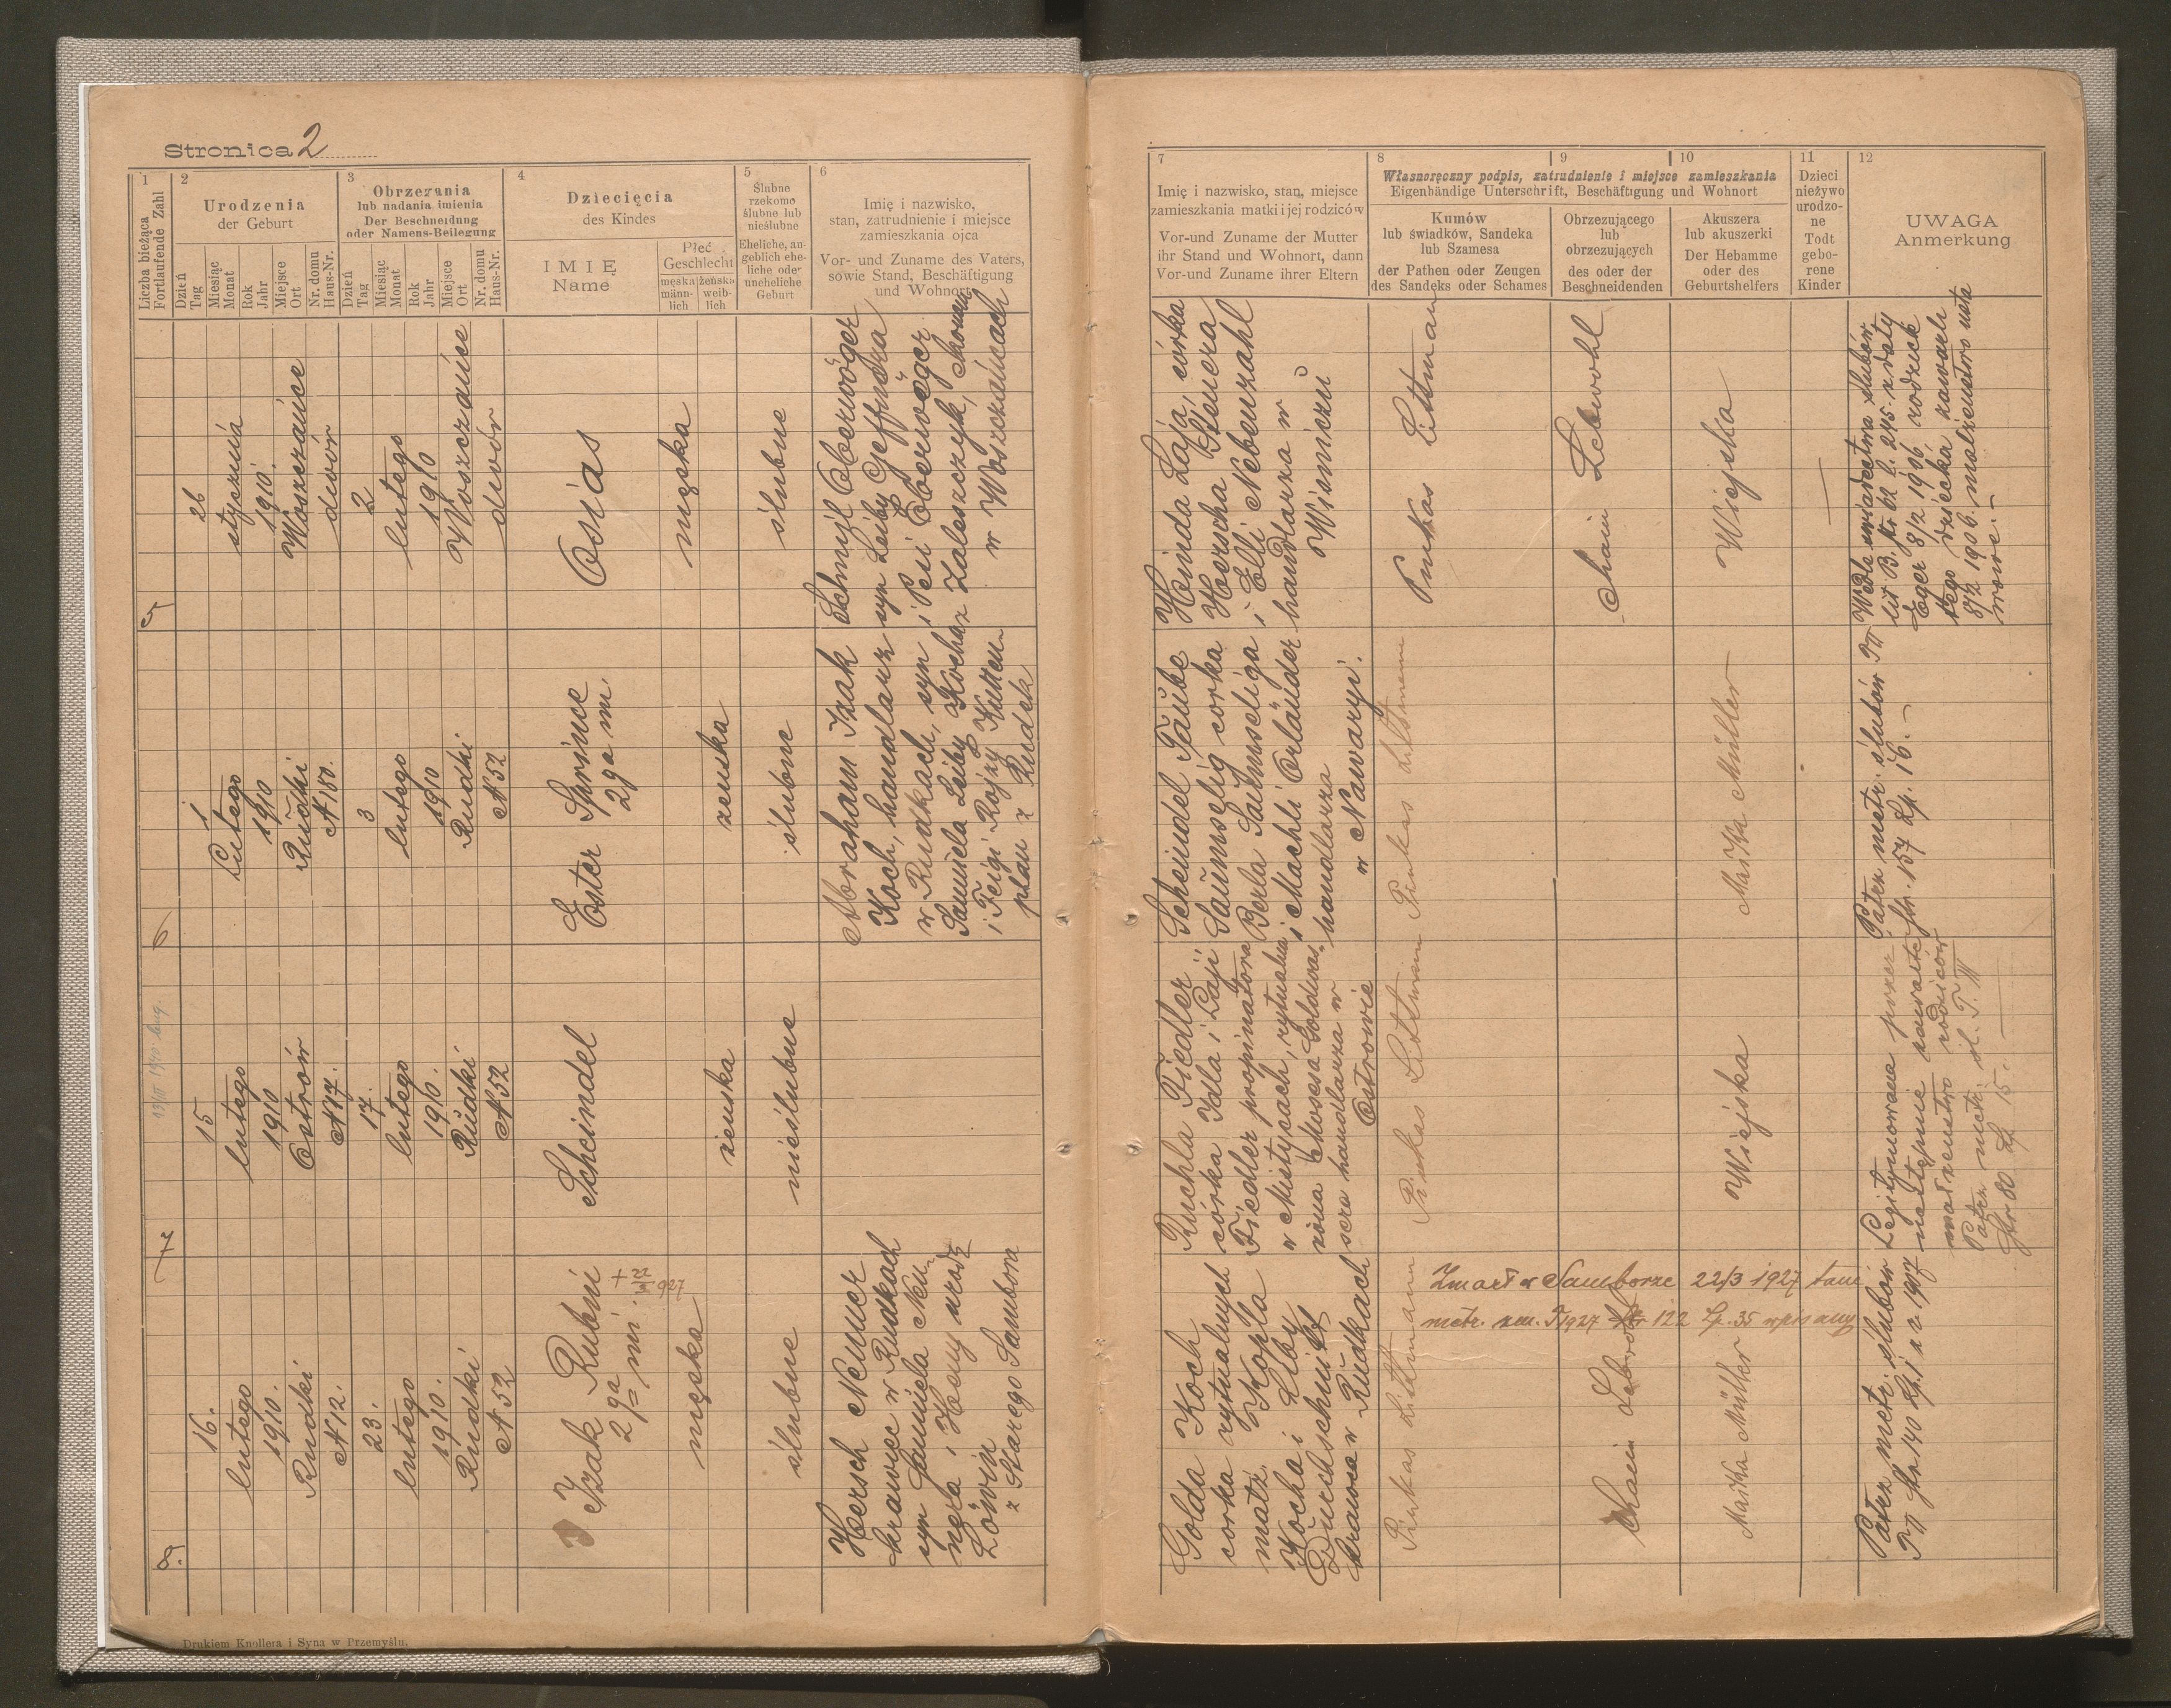 Stronica 2
1
Liczba bieżąca
Fortlaufende Zahl
2
Urodzenia
der Geburt
Dzień
Tag
Miesiąc
Monat
Rok
Jahr
Miejsce
Ort
Nr. domu
Haus-Nr.
3
Obrzezania
lub nadania imienia
Der Beschneidung
oder Namens-Beilegung
Dzień
Tag
Miesiąc
Monat
Rok
Jahr
Miejsce
Ort
Nr. domu
Haus-Nr.
4
Dziecięcia
des Kindes
IMIĘ
Name
Płeć
Geschlecht
męska
männ-
lich
żeńska
weib-
lich
5
Ślubne
rzekomo
ślubne lub
nieślubne
Eheliche, an-
geblich ehe-
liche oder
uneheliche
Geburt
6
Imię i nazwisko,
stan, zatrudnienie i miejsce
zamieszkania ojca
Vor- und Zuname des Vaters,
sowie Stand, Beschäftigung
und Wohnort
7
Imię i nazwisko, stan, miejsce
zamieszkania matki i jej rodziców
Vor-und Zuname der Mutter
ihr Stand und Wohnort, dann
Vor-und Zuname ihrer Eltern
Własnoręczny podpis, zatrudnienie i miejsce zamieszkania
Eigenhändige Unterschrift, Beschäftigung und Wohnort
8
Kumów
lub świadków, Sandeka
lub Szamesa
der Pathen oder Zeugen
des Sandeks oder Schames
9
Obrzezującego
lub
obrzezujących
des oder der
Beschneidenden
10
Akuszera
lub akuszerki
Der Hebamme
oder des
Geburtshelfers
11
Dzieci
nieżywo
urodzo-
ne
Todt
gebo-
rene
Kinder
12
UWAGA
Anmerkung
5
26
stycznia
1910.
Woszczańce
dwór
2
lutego
1910
Woszczańce
dwór
Osias
męska
ślubne
Schmil Eberwöger
syn Leiby Geffnera
i Pesi Eberwöger
z Zaleszczyk,
w Woszczańcach
Heinda Laja, córka
Herscha Bienera
i Elli Nebenzahl
handlarza w
Wiśniczu
Pinkas Littman
Chaim Lebwohl
Wiejska
—
Wedle świadectwa ślubów
lit B. str 62 l. 245 z daty
Eger 8/2 1906 rodzice
tego dziecka zawarli
8/2 1906. małżeństwo
6
1
Lutego
1910
Rudki
N 180.
3
lutego
1910
Rudki
N 52
Ester Sprince
2ga mi.
żeńska
ślubne
Abraham Izak
Koch, handlarz
w Rudkach, syn
Samuela Leiby Kocha
i Feigi Rojzy
z Rudek
Scheindel Taube
Saumselig corka
Berla Saumseliga
i Machli Orländer
handlarza
w Nawaryi.
Pinkas Littmann
Małka Müller
Patrz metr. ślubów T II
str. 157 Lp. 16. —
7
15
lutego
1910
Ostrów
N 17.
17.
lutego
1910.
Rudki
N 52
Scheindel
żeńska
nieślubne
Ruchla Fiedler
córka Idla i Laji
Fiedler propinatora
w Mistycach, rytualna
żona Mosesa
handlarza w
Ostrowie
Pinkas Littman
Wiejska
Legitymowana przez
następnie zawarte
małżeństwo rodziców
Patrz metr. śl. T. III
str 80 Lp 15. —
8.
16.
lutego
1910.
Rudki
N 12.
23.
lutego
1910.
Rudki
N 52
Izak Rubin
2ga mi.
+ 22/3 927
męska
ślubne
Hersch Nemer
krawiec w Rudkach
syn Samuela Nem-
nera i Heny urodz
Löwin
z Starego Sambora
Golda Koch
corka rytualnych
małż. Kopla
Kocha i Liby
krawca w Rudkach
Pinkas Littmann
Zmarł w Samborze 22/3 1927 tam
metr. zm. T 1927 str 122 Lp. 35 wpisany
Chaim Lebwohl
Małka Müller
Patrz metr. ślubów
T II str 140 Lp. 1 z r 1917
Drukiem Knollera i Syna w Przemyślu.